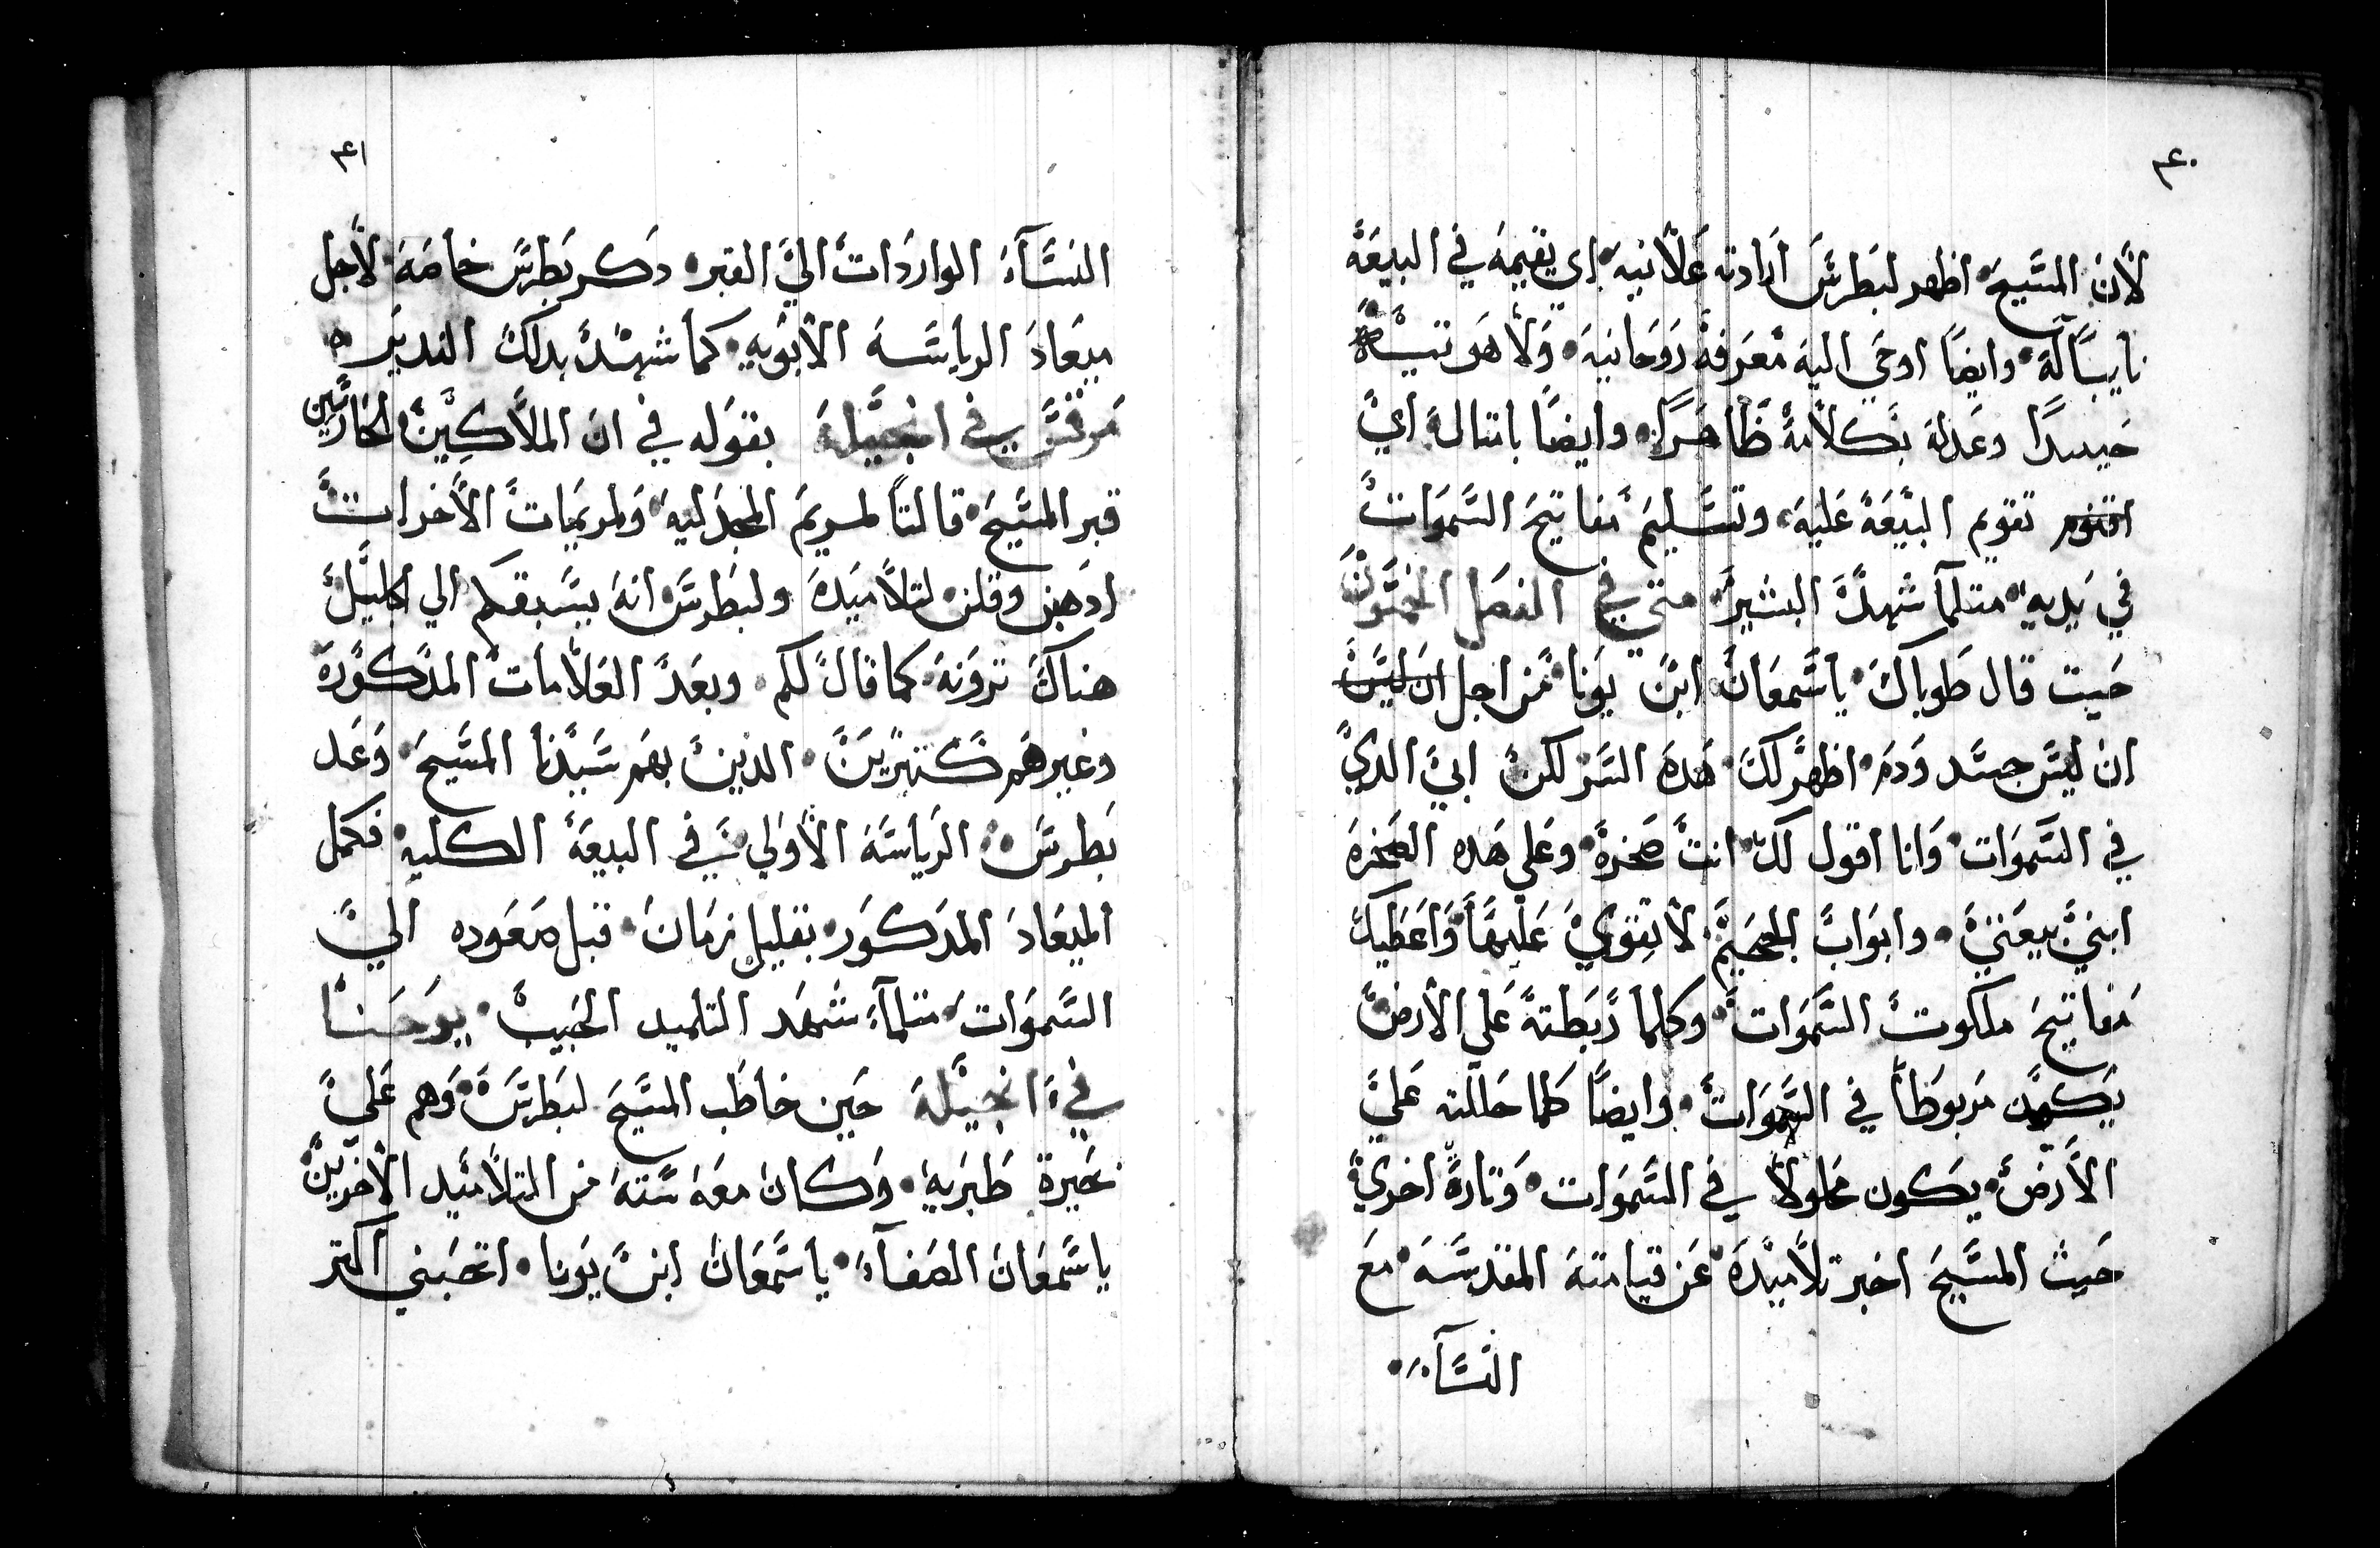 ٤٠
لأن المسيح اظهر لبطرس ارادته علانيه اي يقيمه في البيعة
نايباً له وايضاً اوحي اليه معرفة روحانيه ولاهوتية
جيداً وعدله بكلامه ظاهراً وايضاً بامتاله اي
تقويم البيعة عليه وتسليم مفاتيح السموات
في يديه متلما شهد البشير متي في الفصل
حيت قال طوباك ياسمعان ابن يونا من اجل ان ليس
ان ليس جسد ودم اظهر لك هده السر لكن ابي الدي
في السموات وانا اقول لك انت صخرة وعلي هده الصخرة
ابني بيعتي وابواب الجحيم لا تقوي عليها واعطيك
مفاتيح ملكوت السموات وكلما ربطته علي الارض
يكون مربوطاً في السموات وايضاً كلما حللته علي
الأرض يكون محلولاً في السموات وتارة اخري
حيت المسيح اخبر تلاميده عن قيامته المقدسه مع
النسآء
٤١
النسآء الواردات الي القبر دكر بطرس خاصة لأجل
ميعاد الرياسه الأبويه كما شهد بدلك القديس
مرقس في انجيله بقوله في ان الملاكين الحارسين
قبر المسيح قالتا لمريم المجدليه ولمريمات الأخرات
ادهبن وقلن لتلاميده ولبطرس انه يسبقكم الي الجليل
هناك ترونه كما قال لكم وبعد العلامات المدكورة
وغيرهم كتيرين الدين بهم سيدنا المسيح وعد
بطرس الرياسة الأولي في البيعة الكليه فكمل
الميعاد المدكور بقليل زمان قبل صعوده الي
السموات متلمآ شهد التلميد الحبيب يوحنا
في انجيله حين خاطب المسيح لبطرس وهم علي
بحيرة طبريه وكان معه سته من التلاميد الأخرين
ياسمعان الصفآء ياسمعان ابن يونا اتحبني اكتر